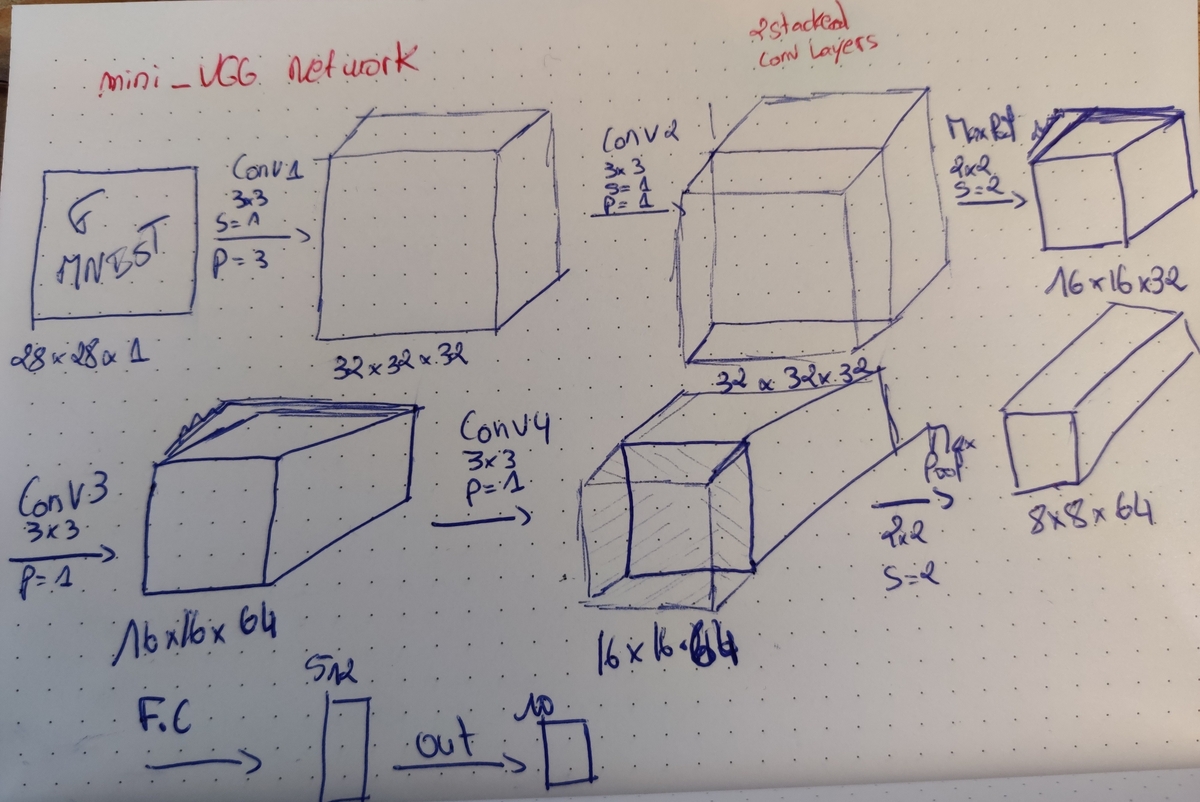 mini_VGG network
2 stacked
Conv Layers
Conv1
3x3
S=1
P=3
28x28x1
32x32x32
Conv2
3x3
S=1
P=1
32x32x32
2x2
S=2
16x16x32
Conv3
3x3
P=1
16x16x64
Conv4
3x3
P=1
16x16x64
Max
Pool
2x2
S=2
8x8x64
F.C
512
out
10